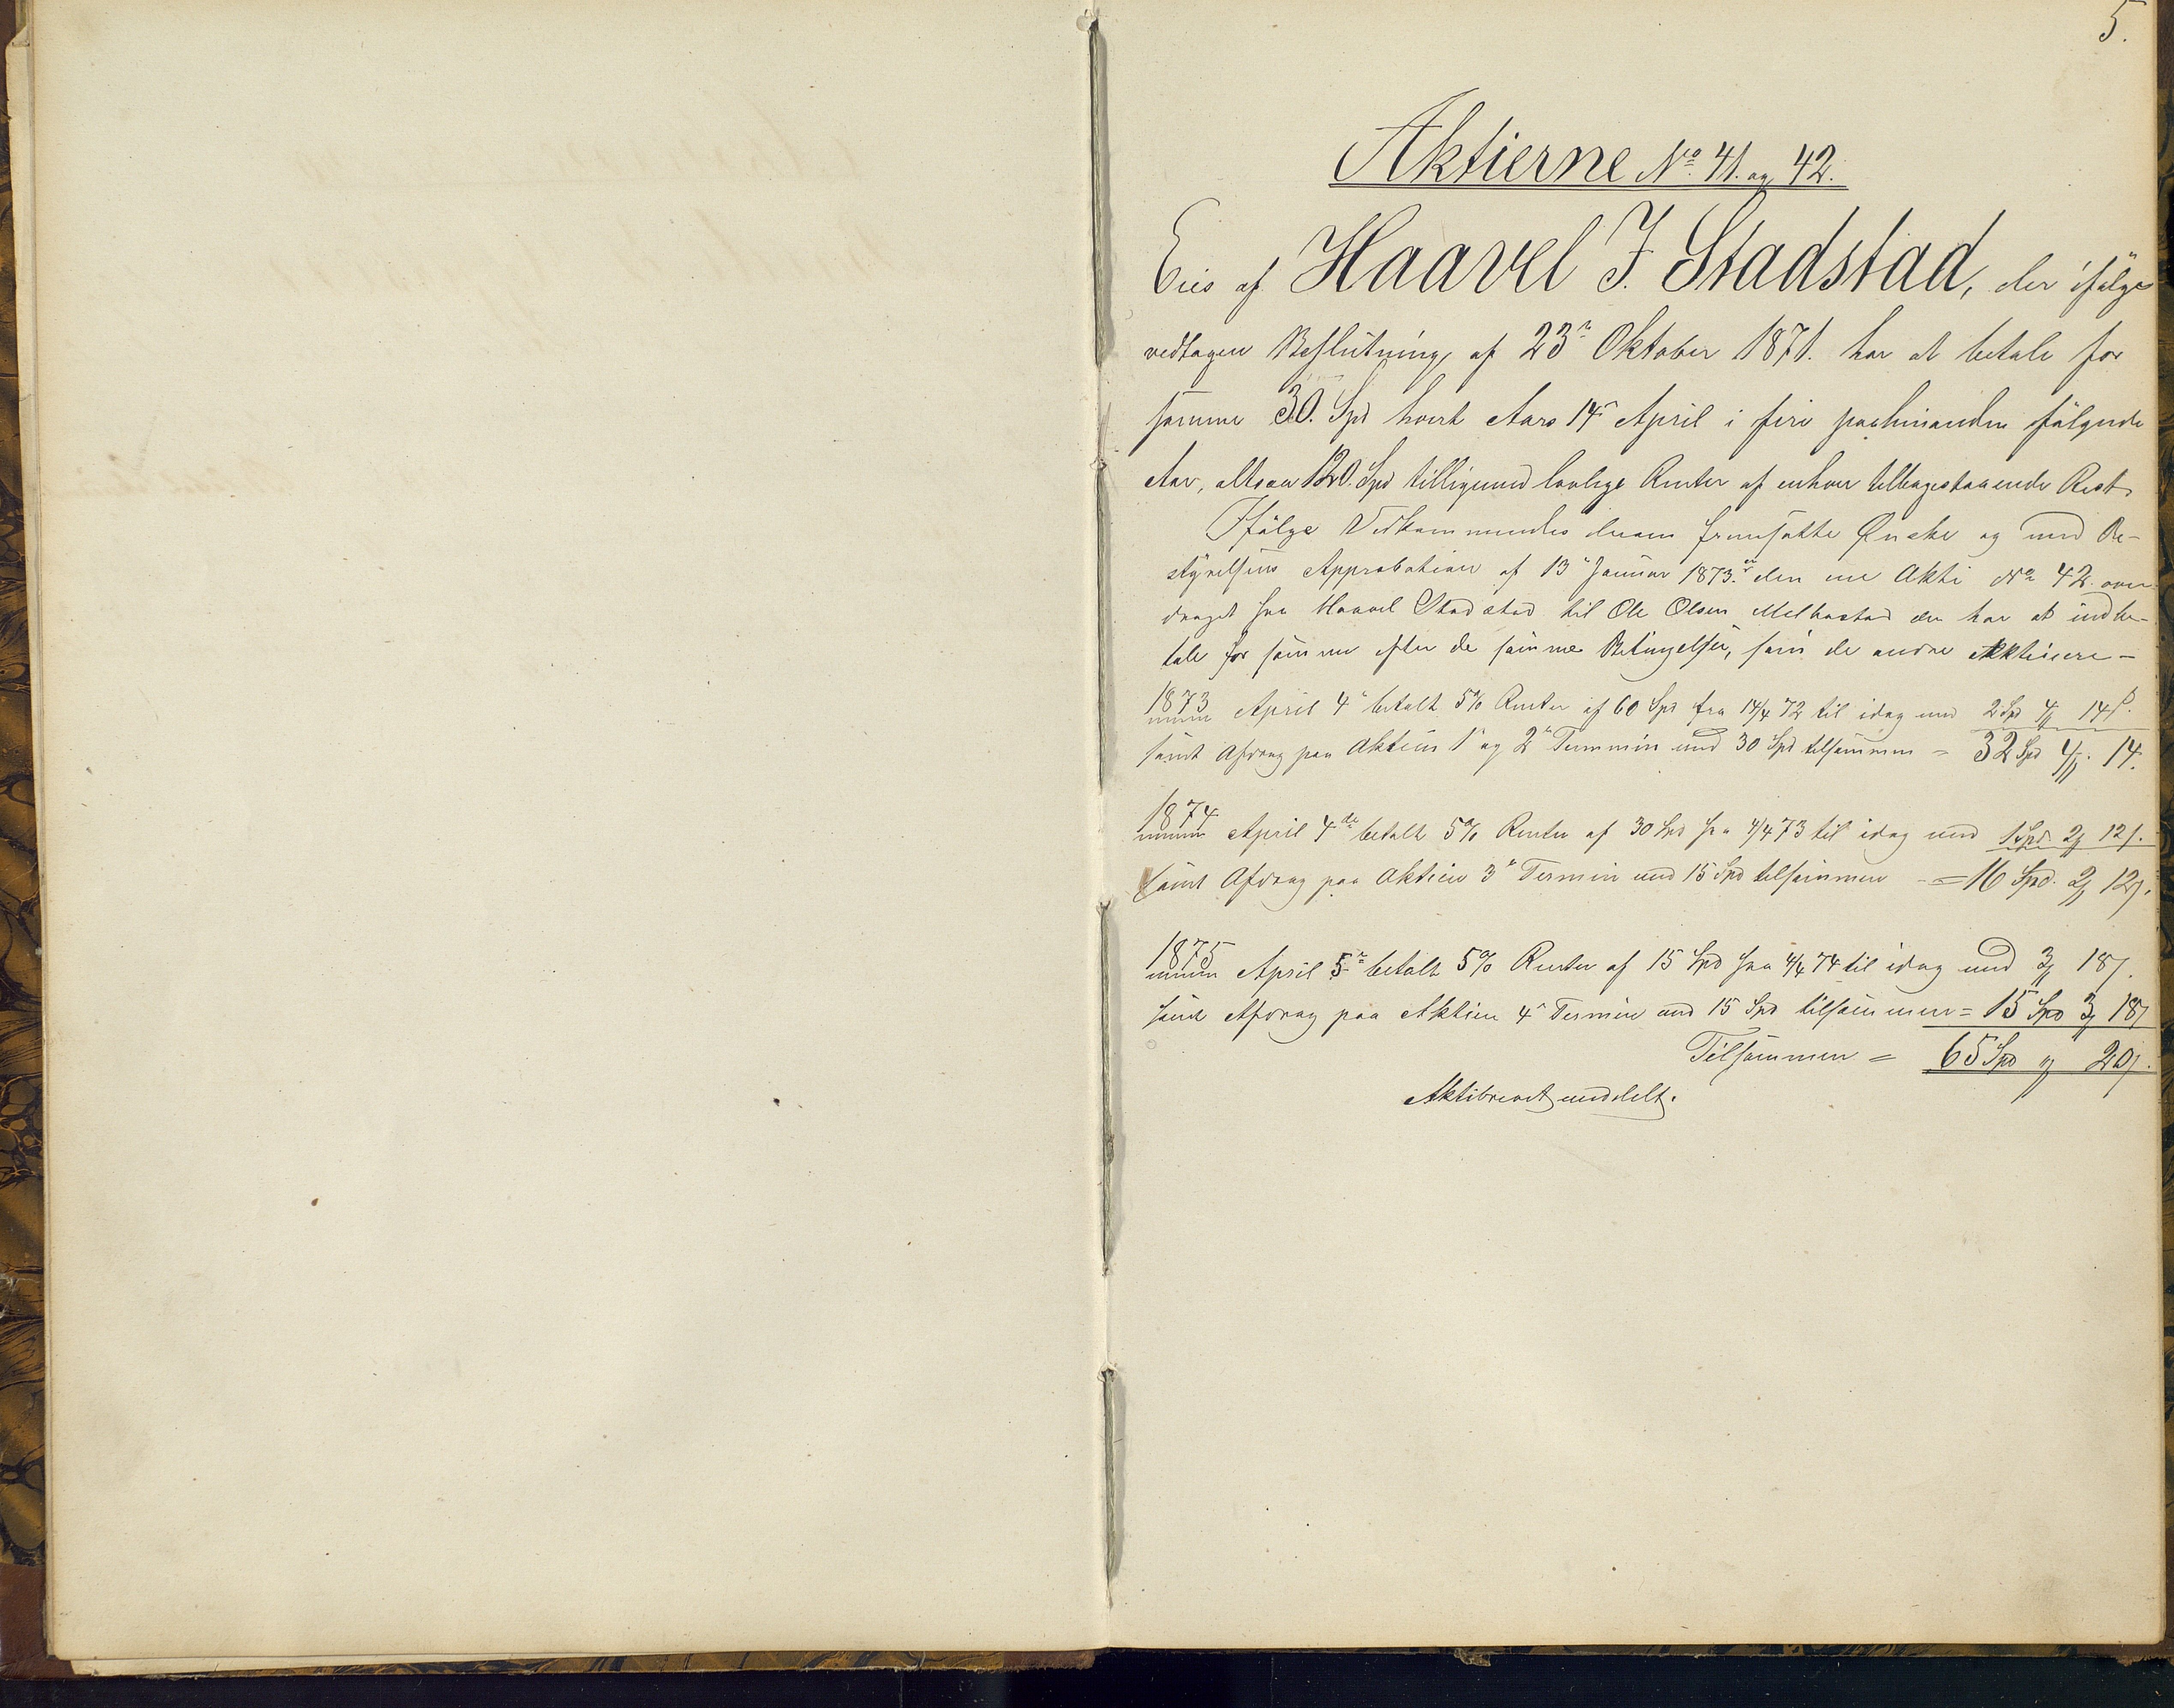 5.
Aktierne No. 41. og 42.
Eies af Haavel J. Stadstad, der ifølge
vedtagen Beslutning af 23n Oktober 1871. har at betale for
samme 30. Spd hvert Aars 14n April i fire paahinanden følgende
Aar, altsaa 120. Spd tilligemed lovlige Renter af enhver tilbagestaaende Rest.
Ifølge Vedkommendes derom fremsatte Ønske og med Be-
styrelsens Approbation af 13n Januar 1873. er den ene Aktie No 42. over-
draget fra Haavel Stadstad til Ole Olsen Melbostad der har at indbe-
tale for samme efter de samme Betingelser, som de andre Aktieeiere –
1873 April 4n betalt 5% Renter af 60 Spd fra 14/4 72 til idag med 2 Spd 4 14 s.
samt Afdrag paa Aktien 1n og 2n Termin med 30 Spd tilsammen = 32 Spd 4. 14.
1874 April 4de betalt 5% Renter af 30 Spd fra 4/4 73 til idag med 1 Spd 2 12 s.
samt Afdrag paa Aktien 3n Termin med 15 Spd tilsammen - = 16 Spd. 2 12 s.
1875 April 5n betalt 5% Renter af 15 Spd fra 4/4 74 til idag med 3 18 s.
samt Afdrag paa Aktien 4n Termin med 15 Spd tilsammen = 15 Spd 3 18 s
Tilsammen = 65 Spd " 20 s.
Aktiebrevet meddelt.